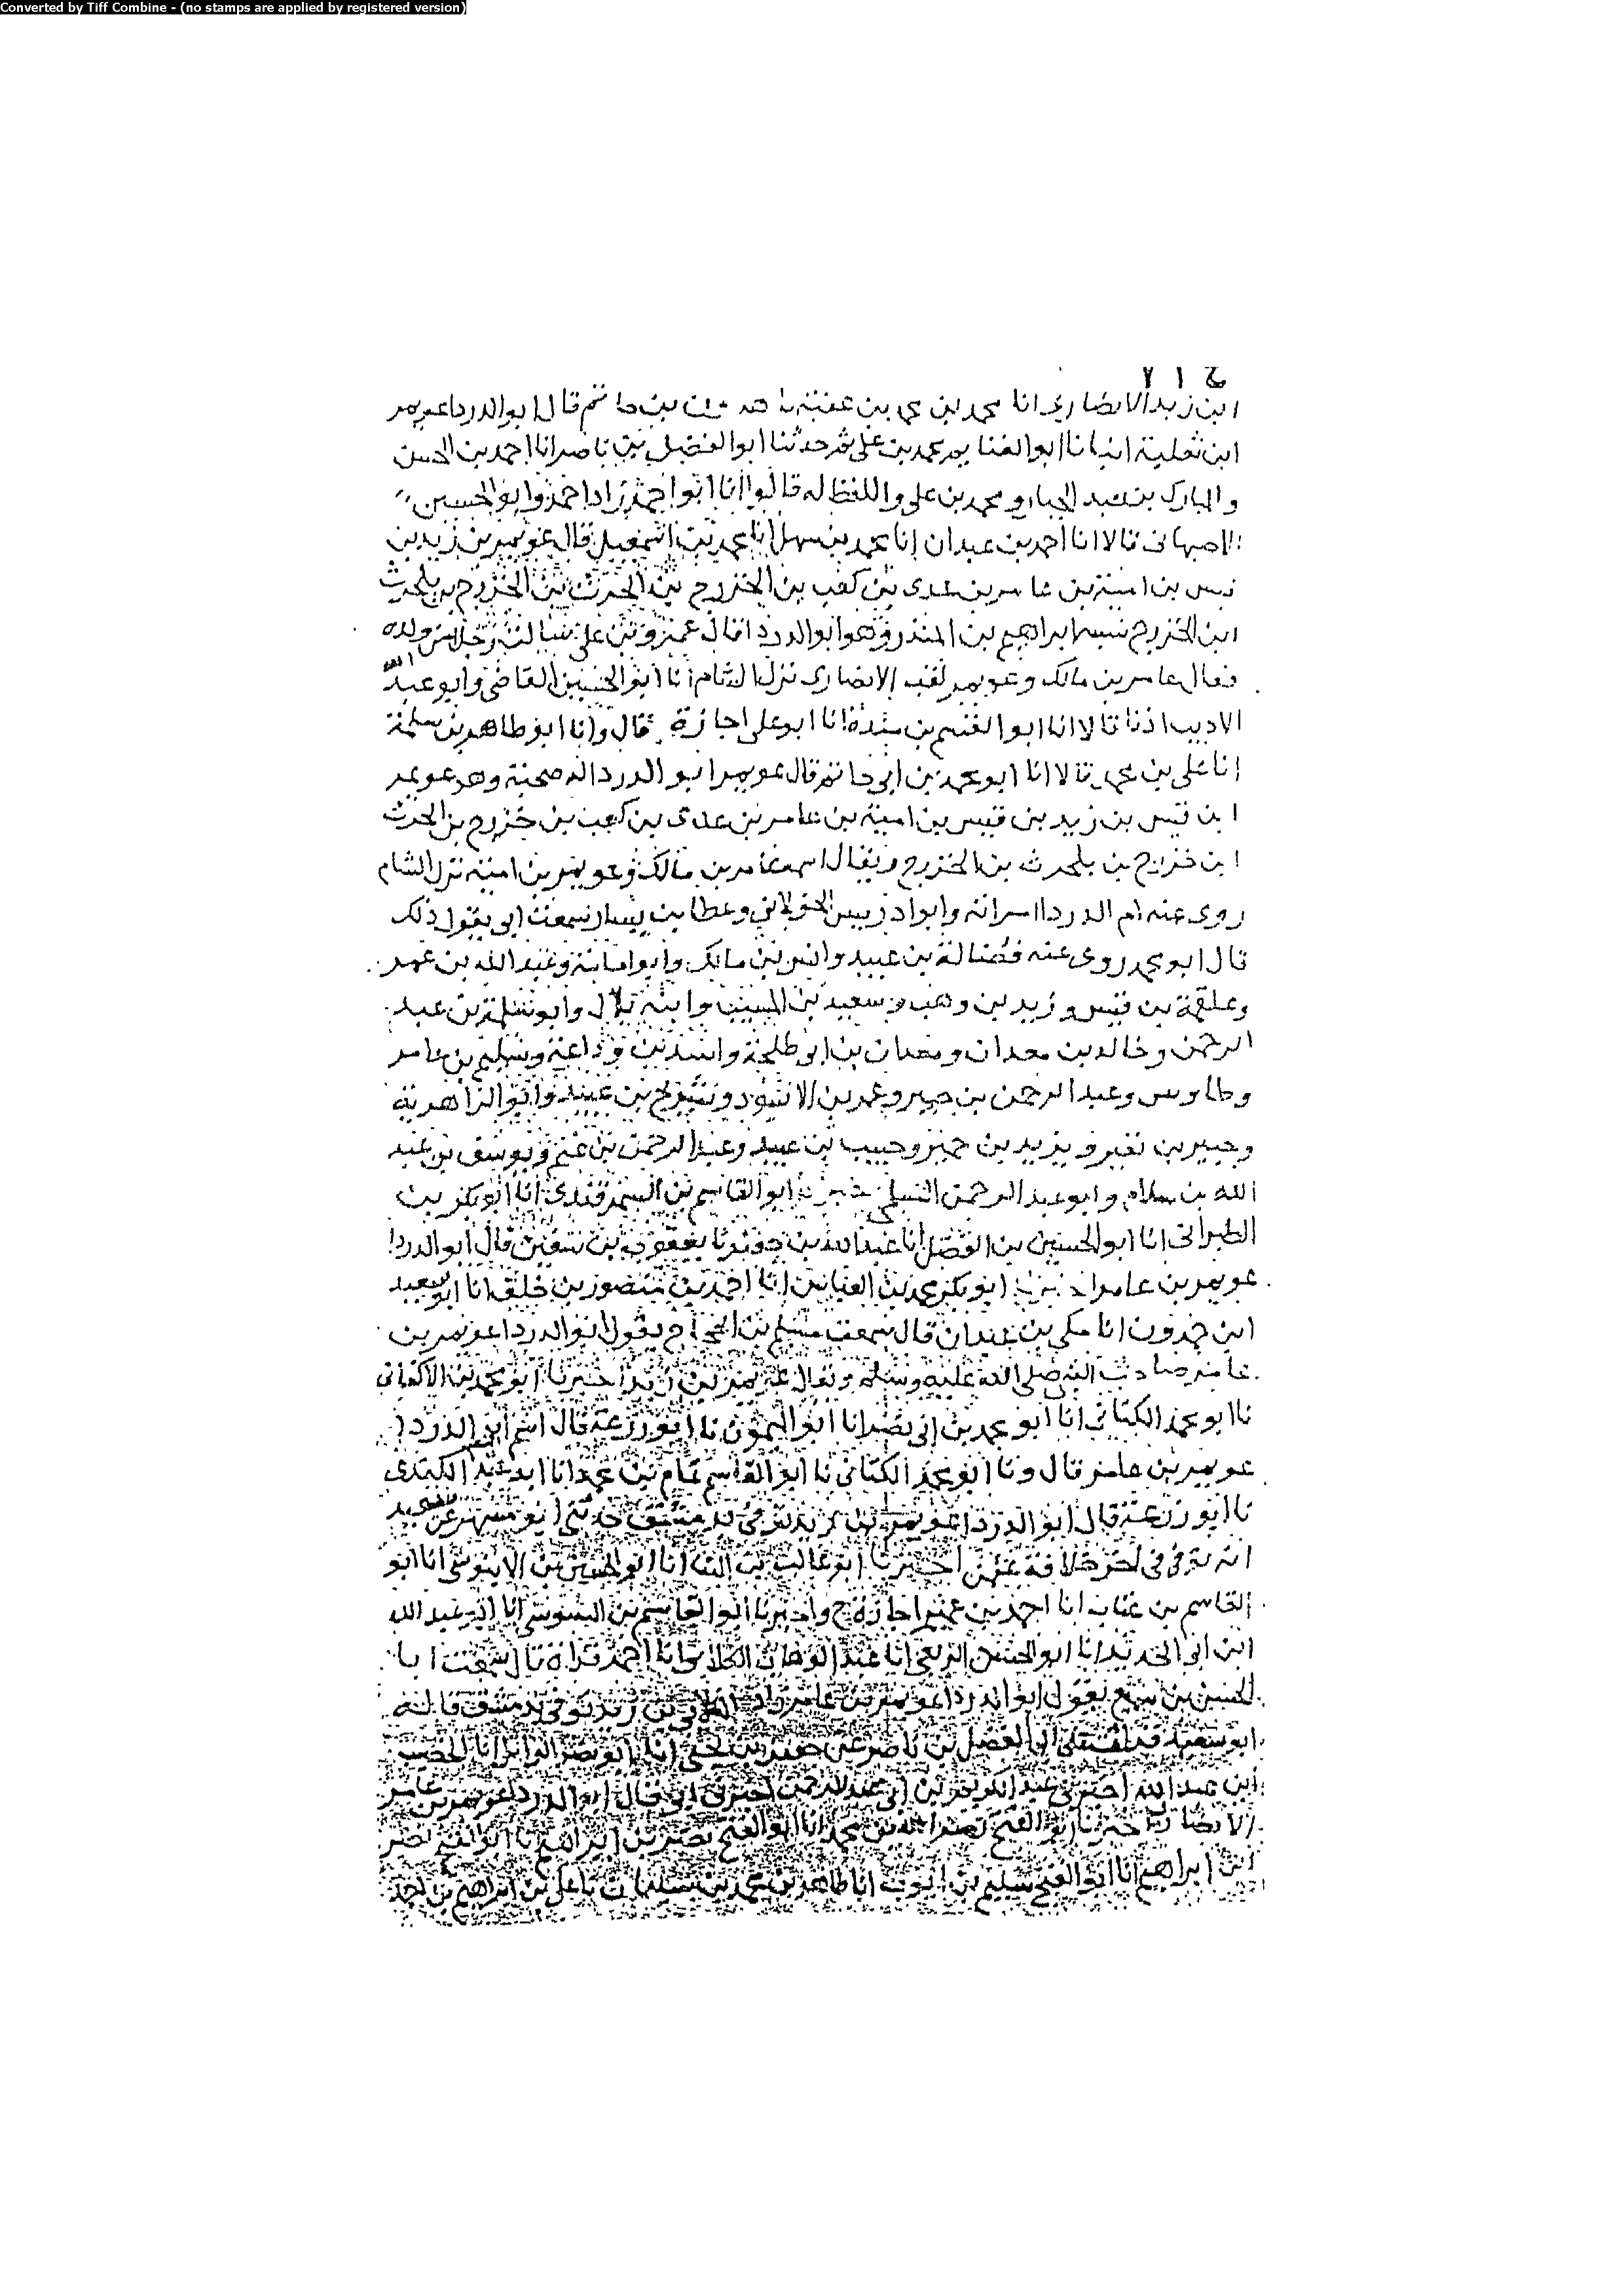 Converted by Tiff Combine - (no stamps are applied by registered version)
ابن زيد الانصاري انا محمد بن محمد بن عقبة نا هشام قال ابو الدرداء عويمر
ابن ثعلبة انبانا ابو الغنايم محمد بن علي ثم حدثنا ابو الفضل بن ناصر انا احمد بن الحسن
والمبارك بن عبد الجبار ومحمد بن علي واللفظ له قالوا انا ابو احمد زاد احمد وابو الحسين
الاصبهاني قالا انا احمد بن عبدان انا محمد بن سهل انا محمد بن اسمعيل قال عويمر بن زيد بن
قيس بن امية بن عامر بن عدي بن كعب بن الخزرج بن الحرث بن الخزرج من بلحرث
ابن الخزرج نسبه ابراهيم بن المنذر وهو ابو الدرداء قال عمرو بن علي سالت رجلا من ولده
فقال عامر بن مالك وعويمر لقب الانصاري نزل الشام انا ابو الحسين القاضي وابو عبد الله
الاديب اذنا قالا انا ابو القسم بن مندة انا ابو علي اجازة قال وانا ابو طاهر بن سلمة
انا علي بن محمد قالا انا ابو محمد بن ابي حاتم قال عويمر ابو الدرداء له صحبة وهو عويمر
ابن قيس بن زيد بن قيس بن امية بن عامر بن عدي بن كعب بن خزرج بن الحرث
ابن خزرج بن بلحرث بن الخزرج ويقال اسمه عامر بن مالك وعويمر بن امية نزل الشام
روى عنه ام الدرداء امراته وابو ادريس الخولاني وعطا بن يسار سمعت ابي يقول ذلك
قال ابو محمد روى عنه فضالة بن عبيد وانس بن مالك وابو امامة وعبد الله بن عمر
وعلقمة بن قيس وزيد بن وهب وسعيد بن المسيب وابنه بلال وابو سلمة بن عبد
الرحمن وخالد بن معدان ومعدان بن ابي طلحة واسد بن وداعة وسليم بن عامر
وطاوس وعبد الرحمن بن جبير وعمر بن الاسود وشريح بن عبيد وابو الزاهرية
وجبير بن نفير ويزيد بن خمير وحبيب بن عبيد وعبد الرحمن بن غنم ويوسف بن عبد
الله بن سلام وابو عبد الرحمن السلمي اخبرنا ابو القاسم بن السمرقندي انا ابو بكر بن
الطبراني انا ابو الحسين بن الفضل انا عبد الله بن جعفر نا يعقوب بن سفين قال ابو الدردا
عويمر بن عامر اخبرنا ابو بكر محمد بن العباس انا احمد بن منصور بن خلف انا ابو سعيد
ابن حمدون انا مكي بن عبدان قال سمعت مسلم بن الحجاج يقول ابو الدردا عويمر بن
عامر صاحب النبي صلى الله عليه وسلم ويقال عويمر بن زيد اخبرنا ابو محمد بن الاكفاني
نا ابو محمد الكتاني انا ابو محمد بن ابي نصر انا ابو الميمون نا ابو زرعة قال اسم ابي الدردا
عويمر بن عامر قال ونا ابو محمد الكتاني نا ابو القاسم تمام بن محمد انا ابو عبد الله الكندي
نا ابو زرعة قال ابو الدردا عويمر بن زيد توفي بدمشق حدثني ابو مسهر عن سعيد
انه توفي في اخر خلافة عثمن اخبرنا ابو غالب بن البنا انا ابو الحسين بن الابنوسي انا ابو
القاسم بن عتاب انا احمد بن عمير اجازة ح واخبرنا ابو القاسم بن السوسي انا ابو عبد الله
ابن ابي الحديد انا ابو الحسن الربعي انا عبد الوهاب الكلابي انا احمد قراة قال سمعت ابا
الحسن بن سميع يقول ابو الدردا عويمر بن عامر بن زيد توفي بدمشق قاله
ابو سعيد قرات على ابي الفضل بن ناصر عن جعفر بن يحيى انا ابو نصر الوايلي انا الخصيب
ابن عبد الله اخبرني عبد الكريم بن ابي عبد الرحمن اخبرني ابي قال ابو الدردا عويمر بن عامر
الانصاري اخبرنا ابو الفتح نصر الله بن محمد انا ابو الفتح نصر بن ابراهيم نا ابو الفتح نصر
ابن ابراهيم انا ابو الفتح سليم بن ايوب انا طاهر بن محمد بن سليمان نا علي بن ابراهيم بن احمد